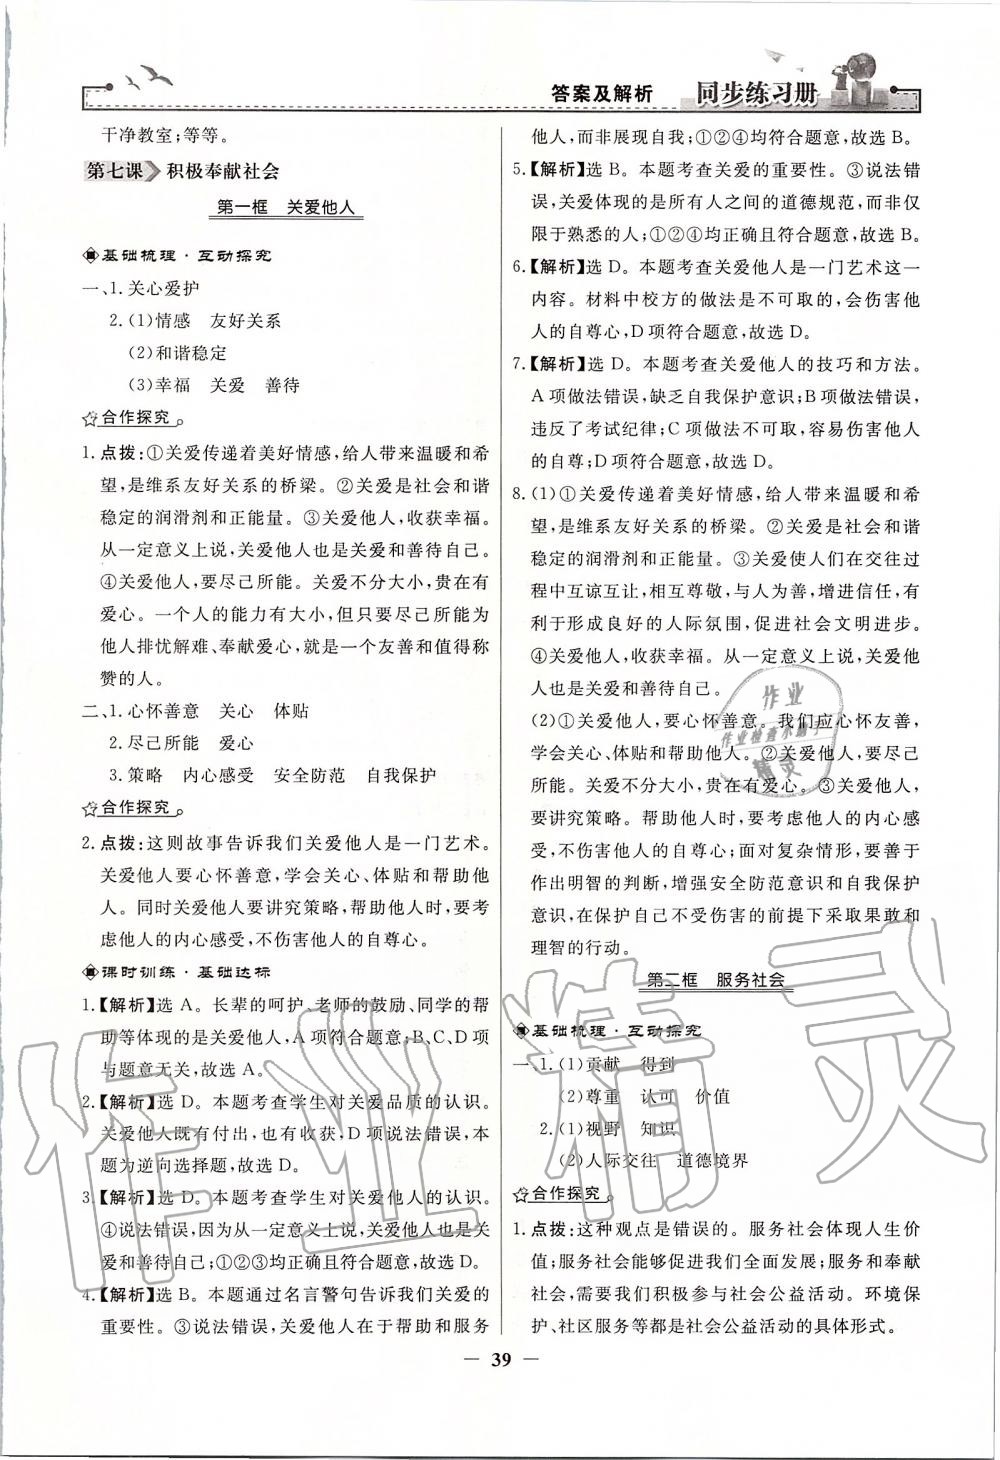 答案及解析 同步练习册
干净教室;等等。
第七课 积极奉献社会
第一框 关爱他人
基础梳理·互动探究
一、1.关心爱护
2.(1)情感 友好关系
(2)和谐稳定
(3)幸福 关爱 善待
合作探究
1.点拨:①关爱传递着美好情感,给人带来温暖和希
望,是维系友好关系的桥梁。②关爱是社会和谐
稳定的润滑剂和正能量。③关爱他人,收获幸福。
从一定意义上说,关爱他人就是关爱和善待自己。
④关爱他人,要尽己所能。关爱不分大小,贵在有
爱心。一个人的能力有大小,但只要尽己所能为
他人排忧解难、奉献爱心,就是一个友善和值得称
赞的人。
二、1.心怀善意 关心 体贴
2.尽己所能 爱心
3.策略 内心感受 安全防范 自我保护
合作探究
2.点拨:这则故事告诉我们关爱他人是一门艺术。
关爱他人要心怀善意,学会关心、体贴和帮助他
人。同时关爱他人要讲究策略,帮助他人时,要考
虑他人的内心感受,不伤害他人的自尊心。
课时训练·基础达标
1.【解析】选 A。长辈的呵护、老师的鼓励、同学的帮
助等体现的是关爱他人,A 项符合题意;B、C、D 项
与题意无关,故选 A。
2.【解析】选 D。本题考查学生对关爱品质的认识。
关爱他人既有付出,也有收获,D 项说法错误,本
题为逆向选择题,故选 D。
3.【解析】选 D。本题考查学生对关爱他人的认识。
④说法错误,因为从一定意义上说,关爱他人也是关
爱和善待自己;①②③均符合题意,故选 D。
4.【解析】选 B。本题通过名言警句告诉我们关爱的
重要性。③说法错误,关爱他人在于帮助和服务
他人,而非展现自我;①②④均符合题意,故选 B。
5.【解析】选 B。本题考查关爱的重要性。③说法错
误,关爱体现的是所有人之间的道德规范,而非仅
限于熟悉的人;①②④均正确且符合题意,故选 B。
6.【解析】选 D。本题考查关爱他人是一门艺术这一
内容。材料中校方的做法是不可取的,会伤害他
人的自尊心,D 项符合题意,故选 D。
7.【解析】选 D。本题考查关爱他人的技巧和方法。
A 项做法错误,缺乏自我保护意识;B 项做法错误,
违反了考试纪律;C 项做法不可取,容易伤害他人
的自尊;D 项符合题意,故选 D。
8.(1)①关爱传递着美好情感,给人带来温暖和希
望,是维系友好关系的桥梁。②关爱是社会和谐
稳定的润滑剂和正能量。③关爱使人们在交往过
程中互谅互让,相互尊敬,与人为善,增进信任,有
利于形成良好的人际氛围,促进社会文明进步。
④关爱他人,收获幸福。从一定意义上说,关爱他
人就是关爱和善待自己。
(2)①关爱他人,要心怀善意。我们应心怀友善,
学会关心、体贴和帮助他人。②关爱他人,要尽己
所能。关爱不分大小,贵在有爱心。③关爱他人,
要讲究策略。帮助他人时,要考虑他人的内心感
受,不伤害他人的自尊心;面对复杂情形,要善于
作出明智的判断,增强安全防范意识和自我保护
意识,在保护自己不受伤害的前提下采取果敢和
理智的行动。
第二框 服务社会
基础梳理·互动探究
一、1.(1)贡献 得到
(2)尊重 认可 价值
2.(1)视野 知识
(2)人际交往 道德境界
合作探究
1.点拨:这种观点是错误的。服务社会体现人生价
值;服务社会能够促进我们全面发展;服务和奉献
社会,需要我们积极参与社会公益活动。环境保
护、社区服务等都是社会公益活动的具体形式。
— 39 —
作业精灵
作业
作业检查小助手
精灵